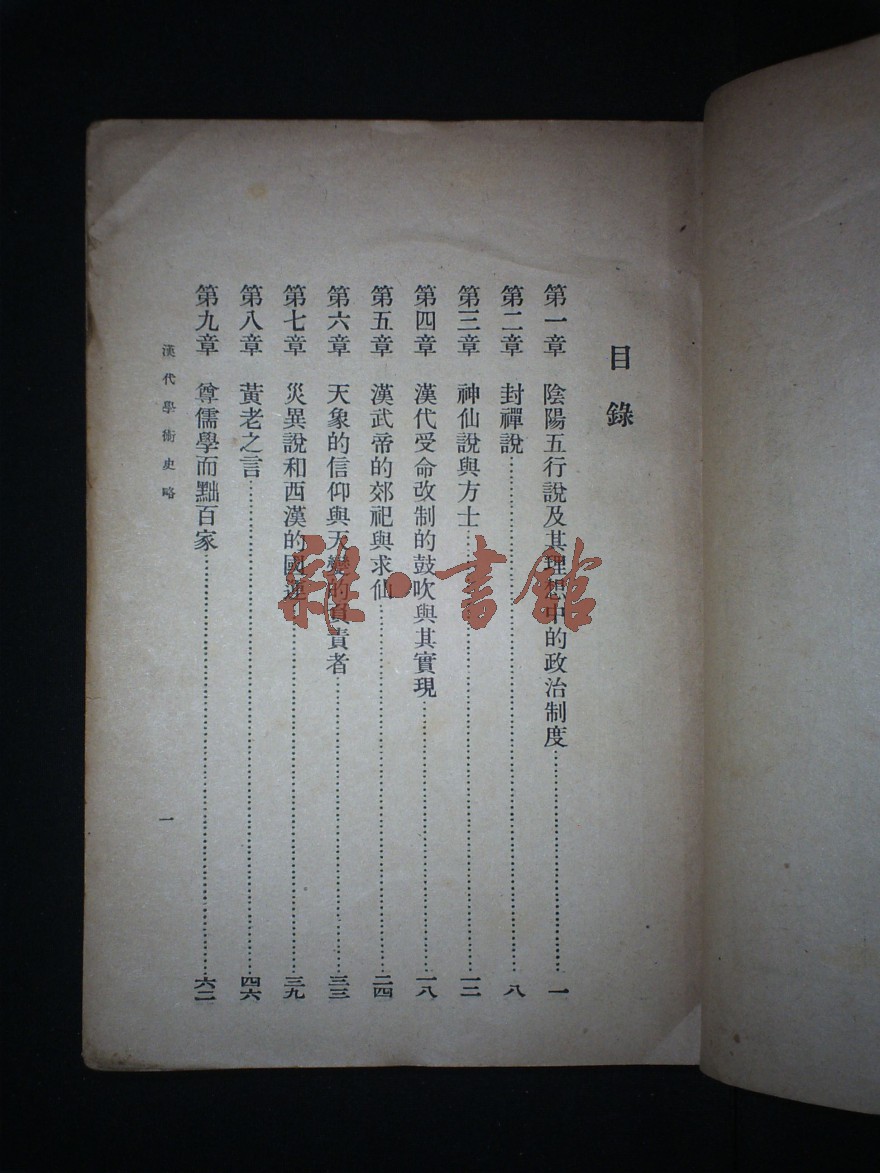 目錄
第一章 陰陽五行說及其理想中的政治制度……一
第二章 封禪說……八
第三章 神仙說與方士……一二
第四章 漢代受命改制的鼓吹與其實現……一八
第五章 漢武帝的郊祀與求仙……二四
第六章 天象的信仰與天變的負責者……三三
第七章 災異說和西漢的國運……三九
第八章 黃老之言……四六
第九章 尊儒學而黜百家……六二
漢代學術史略
一
雜·書館